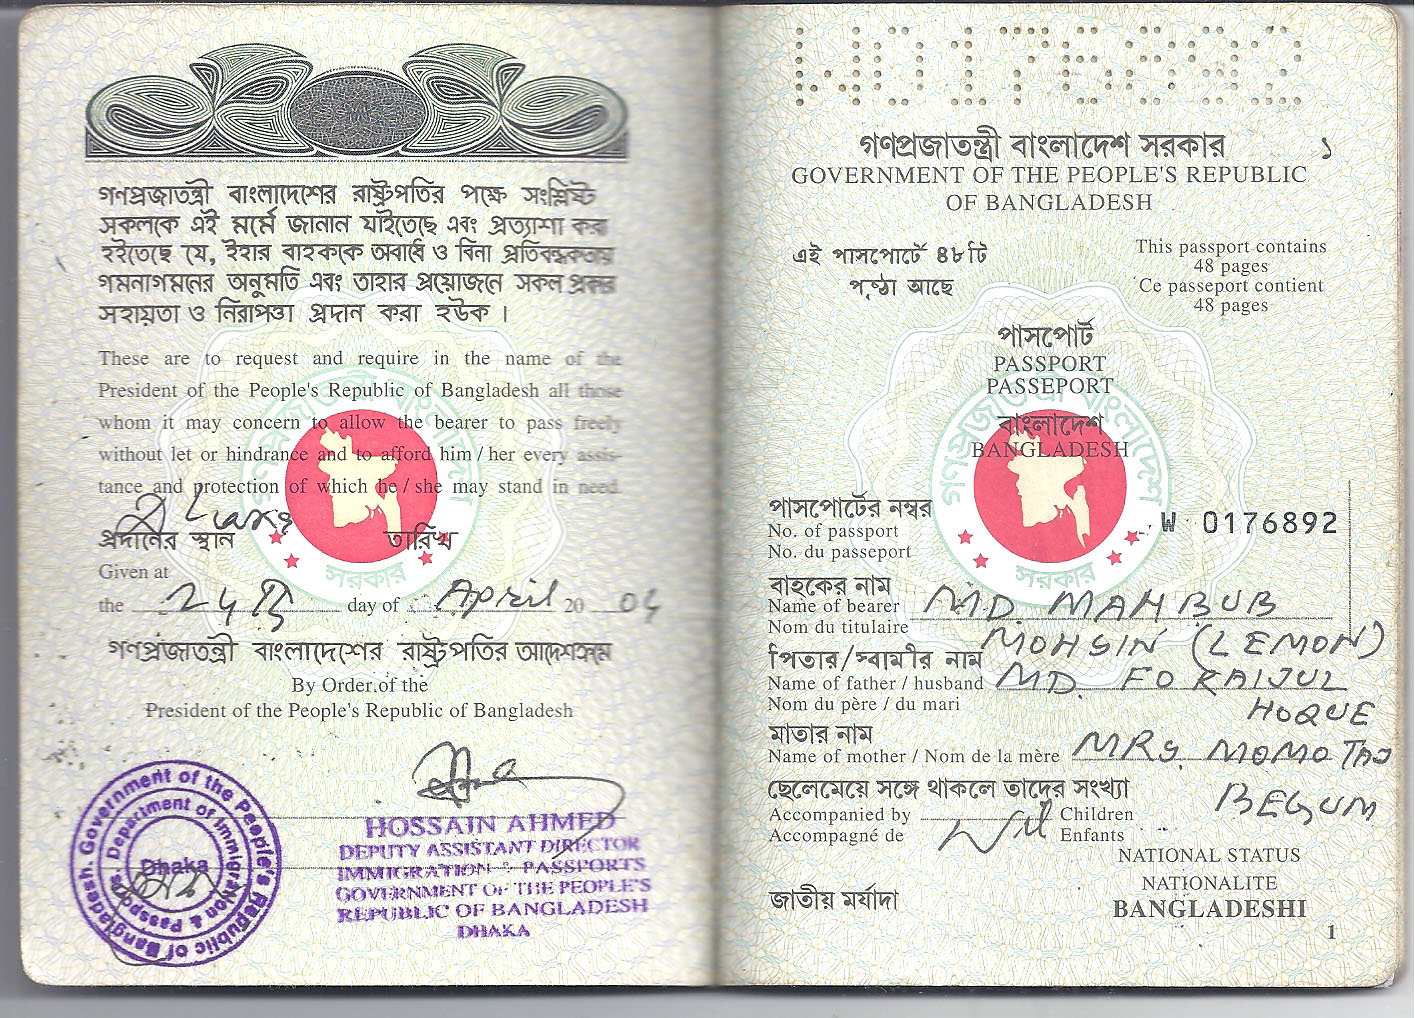 গণপ্রজাতন্ত্রী বাংলাদেশের রাষ্ট্রপতির পক্ষে সংশ্লিষ্ট
সকলকে এই মর্মে জানান যাইতেছে এবং প্রত্যাশা করা
হইতেছে যে, ইহার বাহককে অবাধে ও বিনা প্রতিবন্ধকতায়
গমনাগমনের অনুমতি এবং তাহার প্রয়োজনে সকল প্রকার
সহায়তা ও নিরাপত্তা প্রদান করা হউক ।
These are to request and require in the name of the
President of the People's Republic of Bangladesh all those
whom it may concern to allow the bearer to pass freely
without let or hindrance and to afford him / her every assis-
tance and protection of which he / she may stand in need.
প্রদানের স্থান তারিখ
Given at
the 24th day of April 20 04
গণপ্রজাতন্ত্রী বাংলাদেশের রাষ্ট্রপতির আদেশক্রমে
By Order of the
President of the People's Republic of Bangladesh
HOSSAIN AHMED
DEPUTY ASSISTANT DIRECTOR
IMMIGRATION & PASSPORTS
GOVERNMENT OF THE PEOPLE'S
REPUBLIC OF BANGLADESH
DHAKA
Government of the People's Republic of Bangladesh.
Department of Immigration & Passports
Dhaka
W0176892
গণপ্রজাতন্ত্রী বাংলাদেশ সরকার ১
GOVERNMENT OF THE PEOPLE'S REPUBLIC
OF BANGLADESH
এই পাসপোর্টে ৪৮টি
পৃষ্ঠা আছে
This passport contains
48 pages
Ce passeport contient
48 pages
পাসপোর্ট
PASSPORT
PASSEPORT
বাংলাদেশ
BANGLADESH
গণপ্রজাতন্ত্রী বাংলাদেশ
সরকার
পাসপোর্টের নম্বর
No. of passport W 0176892
No. du passeport
বাহকের নাম
Name of bearer MD. MAHBUB
Nom du titulaire MOHSIN (LEMON)
পিতার/স্বামীর নাম
Name of father / husband MD. FORAIJUL
Nom du père / du mari HOQUE
মাতার নাম
Name of mother / Nom de la mère MRS. MOMOTAJ
BEGUM
ছেলেমেয়ে সঙ্গে থাকলে তাদের সংখ্যা
Accompanied by Nil Children
Accompagné de Enfants
NATIONAL STATUS
NATIONALITE
জাতীয় মর্যাদা BANGLADESHI
1